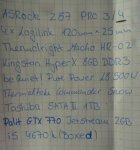 ASRock Z87 PRO 3/4
4x Logilink 120mm ~25mm
Thermalright Macho HR-02
Kingston HyperX 8GB DDR3
be quiet! Pure Power L8 500W
Thermaltake Commander Snow
Toshiba SATA III 1TB
Palit GTX 770 Jetstream 2GB
i5 4670k (Boxed)